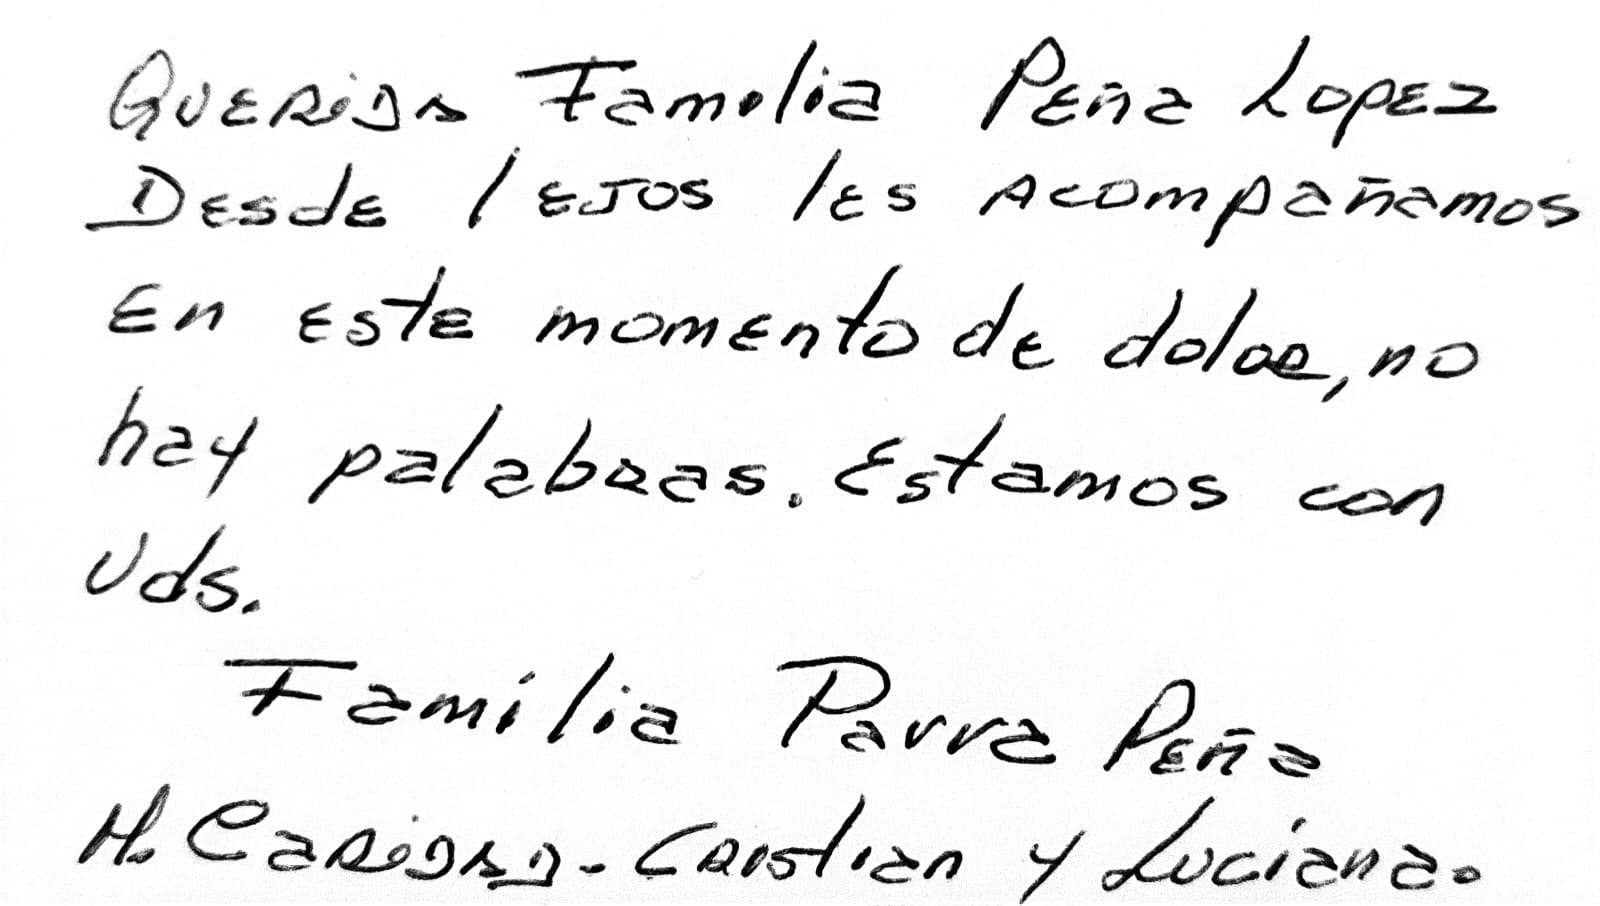 Querida Familia Peña Lopez
Desde lejos les acompañamos
En este momento de dolor, no
hay palabras. Estamos con
Uds.
Familia Parra Peña
M. Caridad - Cristian y Luciana.